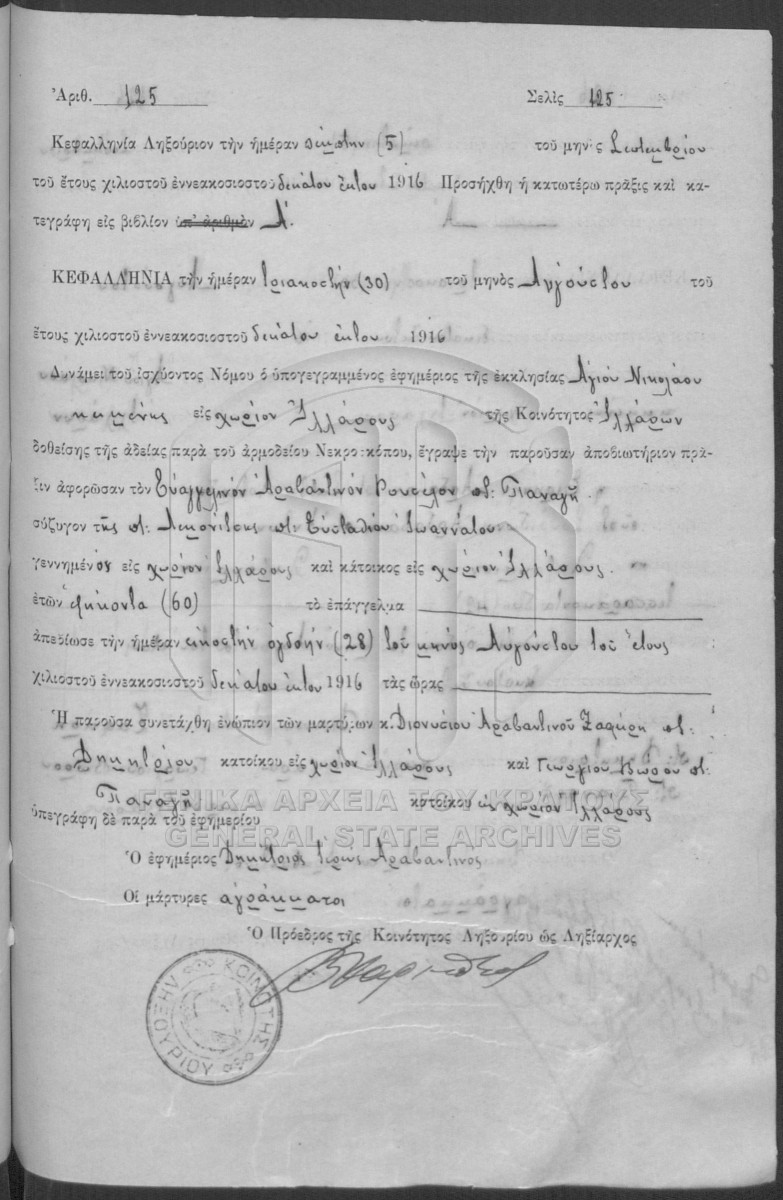 Ἀριθ. 125 Σελὶς 125
Κεφαλληνία Ληξούριον τὴν ἡμέραν πέμπτην (5) τοῦ μηνὸς Σεπτεμβρίου
τοῦ ἔτους χιλιοστοῦ ἐννεακοσιοστοῦ δεκάτου ἕκτου 1916 Προσήχθη ἡ κατωτέρω πρᾶξις καὶ κα-
τεγράφη εἰς βιβλίον ὑπ' ἀριθμὸν Α΄.
ΚΕΦΑΛΛΗΝΙΑ τὴν ἡμέραν τριακοστὴν (30) τοῦ μηνὸς Αὐγούστου τοῦ
ἔτους χιλιοστοῦ ἐννεακοσιοστοῦ δεκάτου ἕκτου 1916
Δυνάμει τοῦ ἰσχύοντος Νόμου ὁ ὑπογεγραμμένος ἐφημέριος τῆς ἐκκλησίας Ἁγίου Νικολάου
εἰς χωρίον Ἰλλάρους τῆς Κοινότητος Ἰλλάρων
δοθείσης τῆς ἀδείας παρὰ τοῦ ἁρμοδείου Νεκροσκόπου, ἔγραψε τὴν παροῦσαν ἀποβιωτήριον πρᾶ-
ξιν ἀφορῶσαν τὸν Εὐαγγελινὸν Ἀραβαντινὸν π: Παναγῆ.
σύζυγον τῆς π: Εὐσταθίου Ἰωαννάτου
γεννημένον εἰς χωρίον Ἰλλάρους καὶ κάτοικος εἰς χωρίον Ἰλλάρους.
ἐτῶν ἑξήκοντα (60) τὸ ἐπάγγελμα
ἀπεβίωσε τὴν ἡμέραν εἰκοστὴν ὀγδόην (28) τοῦ μηνὸς Αὐγούστου τοῦ ἔτους
χιλιοστοῦ ἐννεακοσιοστοῦ δεκάτου ἕκτου 1916 τὰς ὥρας
Ἡ παροῦσα συνετάχθη ἐνώπιον τῶν μαρτύρων κ. Διονυσίου Ἀραβαντινοῦ Ζαφείρη π:
Δημητρίου κατοίκου εἰς χωρίον Ἰλλάρους καὶ Γεωργίου Βώρου π:
Παναγῆ κατοίκου εἰς χωρίον Ἰλλάρους
ΓΕΝΙΚΑ ΑΡΧΕΙΑ ΤΟΥ ΚΡΑΤΟΥΣ
ὑπεγράφη δὲ παρὰ τοῦ ἐφημερίου
GENERAL STATE ARCHIVES
Ὁ ἐφημέριος Δημήτριος ἱερεὺς Ἀραβαντινός
Οἱ μάρτυρες ἀγράμματοι
Ὁ Πρόεδρος τῆς Κοινότητος Ληξουρίου ὡς Ληξίαρχος
ΚΟΙΝΟΤΗΣ ΛΗΞΟΥΡΙΟΥ